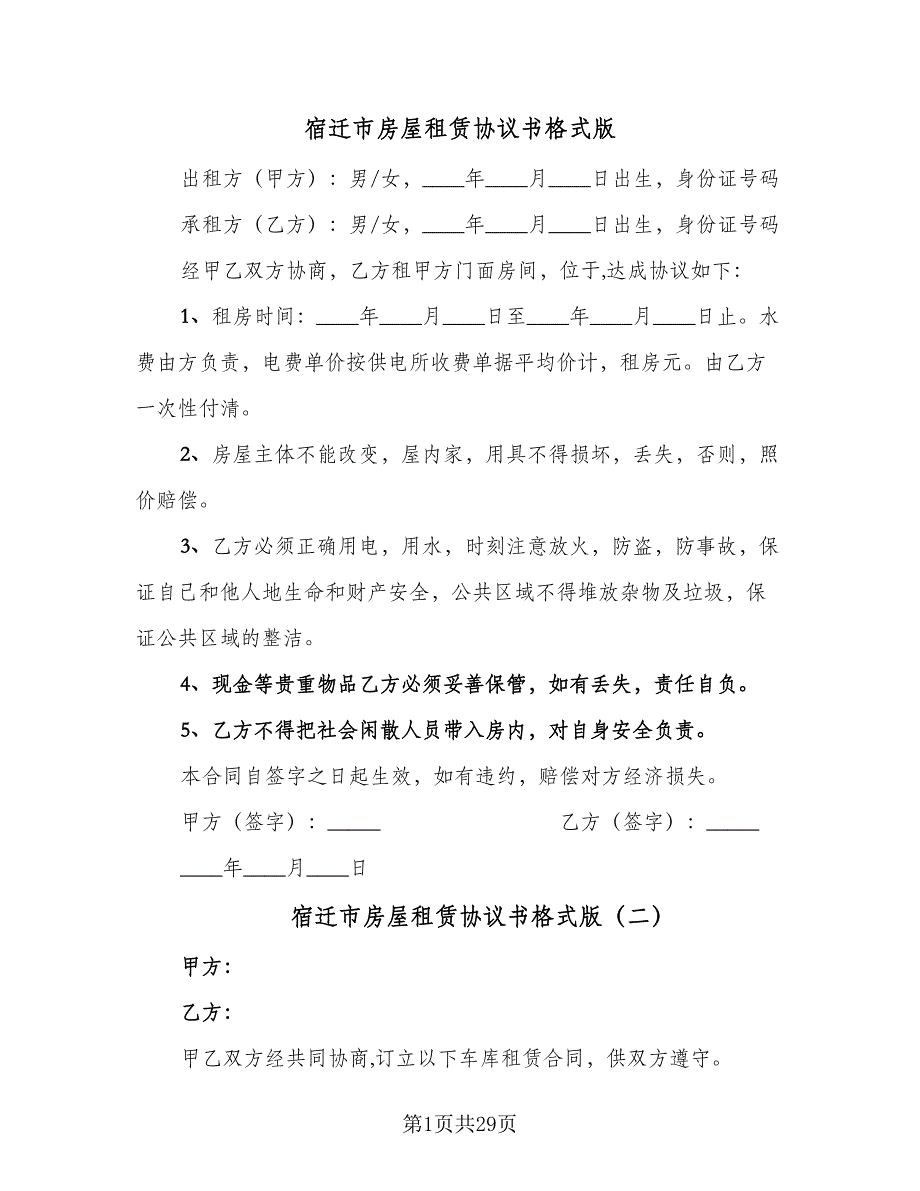 宿迁市房屋租赁协议书格式版
出租方（甲方）：男/女，____年____月____日出生，身份证号码
承租方（乙方）：男/女，____年____月____日出生，身份证号码
经甲乙双方协商，乙方租甲方门面房间，位于,达成协议如下：
1、租房时间：____年____月____日至____年____月____日止。水
费由方负责，电费单价按供电所收费单据平均价计，租房元。由乙方
一次性付清。
2、房屋主体不能改变，屋内家，用具不得损坏，丢失，否则，照
价赔偿。
3、乙方必须正确用电，用水，时刻注意放火，防盗，防事故，保
证自己和他人地生命和财产安全，公共区域不得堆放杂物及垃圾，保
证公共区域的整洁。
4、现金等贵重物品乙方必须妥善保管，如有丢失，责任自负。
5、乙方不得把社会闲散人员带入房内，对自身安全负责。
本合同自签字之日起生效，如有违约，赔偿对方经济损失。
甲方（签字）：_____ 乙方（签字）：_____
____年____月____日
宿迁市房屋租赁协议书格式版（二）
甲方：
乙方：
甲乙双方经共同协商,订立以下车库租赁合同，供双方遵守。
第1页共29页